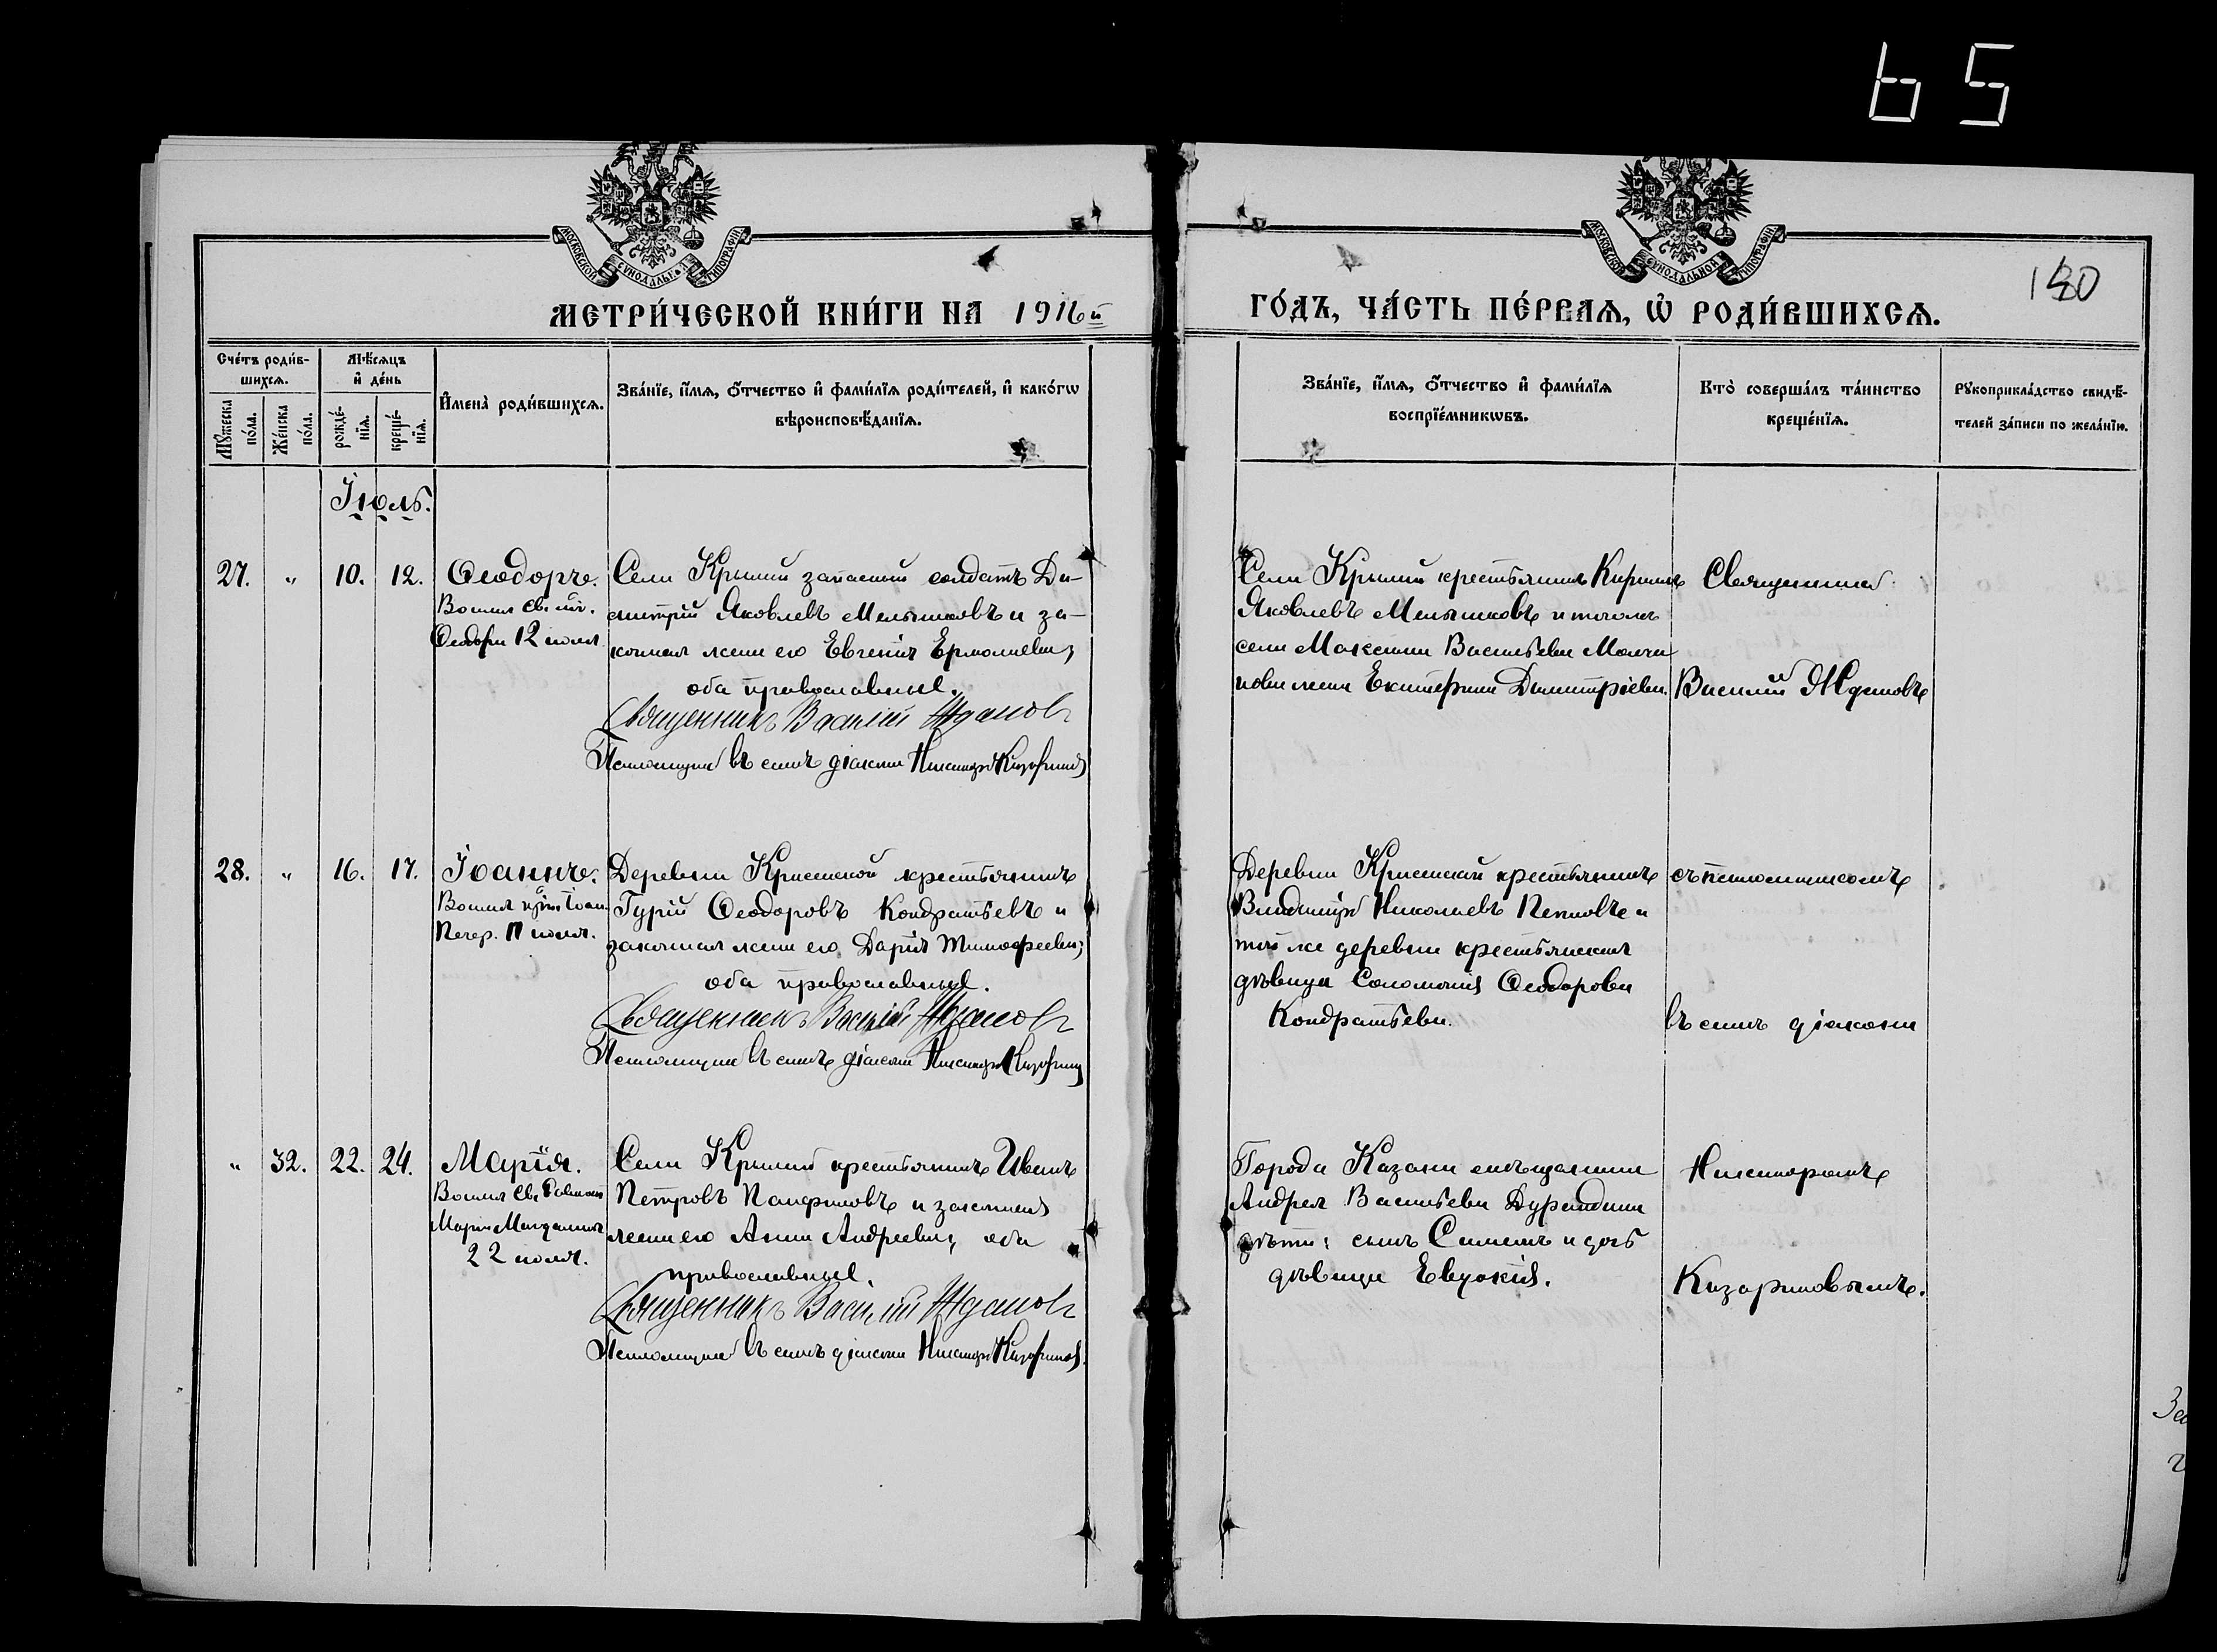 65
МОСКОВСКОЙ СѴНОДАЛЬНОЙ ТИПОГРАФІИ
МОСКОВСКОЙ СѴНОДАЛЬНОЙ ТИПОГРАФІИ
МЕТРИ́ЧЕСКОЙ КНИ́ГИ НА 1916й
ГО́ДЪ, ЧА́СТЬ ПЕ́РВАѦ, Ѡ҆ РОДИ́ВШИХСѦ.
Сче́тъ роди́в-
шихсѧ.
Мꙋ́жеска по́ла.
Же́нска по́ла.
Мѣ́сѧцъ
и҆ де́нь
рожде́-
нїѧ.
креще́-
нїѧ.
И҆мена̀ роди́вшихсѧ.
Зва́нїе, и҆́мѧ, ѻ҆́тчество и҆ фами́лїѧ роди́телей, и҆ како́гѡ
вѣроисповѣ́данїѧ.
Зва́нїе, и҆́мѧ, ѻ҆́тчество и҆ фами́лїѧ
воспрїе́мникѡвъ.
Кто̀ соверша́лъ та́инство
креще́нїѧ.
Рꙋкоприкла́дство свидѣ́-
телей за́писи по жела́нїю.
Іюль.
27. " 10. 12. Ѳеодоръ.
Ѳеодора 12 іюля
Села Крыма запасный солдатъ Ди-
митрій Яковлевъ Мельниковъ и за-
конная жена его Евгенія Ермолаева,
оба православные.
Священникъ Василій Ждановъ
Псаломщикъ въ санѣ діакона Никаноръ Казариновъ
Села Крыма крестьянинъ
Яковлевъ Мельниковъ и того же
села Васильева
жена Екатерина Димитріева.
Священникъ
Василій Ждановъ
28. " 16. 17. Іоаннъ.
Печер. 17 іюля.
Деревни крестьянинъ
Гурій Ѳеодоровъ Кондратьевъ и
законная жена его Дарія Тимоѳеева;
оба православные.
Священникъ Василій Ждановъ
Псаломщикъ въ санѣ діакона Никаноръ Казариновъ
Деревни крестьянинъ
Владиміръ Николаевъ и
той же деревни крестьянская
дѣвица Соломонія Ѳеодорова
Кондратьева.
съ псаломщикомъ
въ санѣ діакона
" 32. 22. 24. Марія.
Маріи Магдалины
22 іюля.
Села Крыма крестьянинъ Иванъ
Петровъ Панфиловъ и законная
жена его Анна Андреева, оба
православные.
Священникъ Василій Ждановъ
Псаломщикъ въ санѣ діакона Никаноръ Казариновъ.
Города Казани мѣщанина
Андрея Васильева
дѣти: сынъ и дочь
дѣвица Евдокія.
Никаноромъ
Казариновымъ.